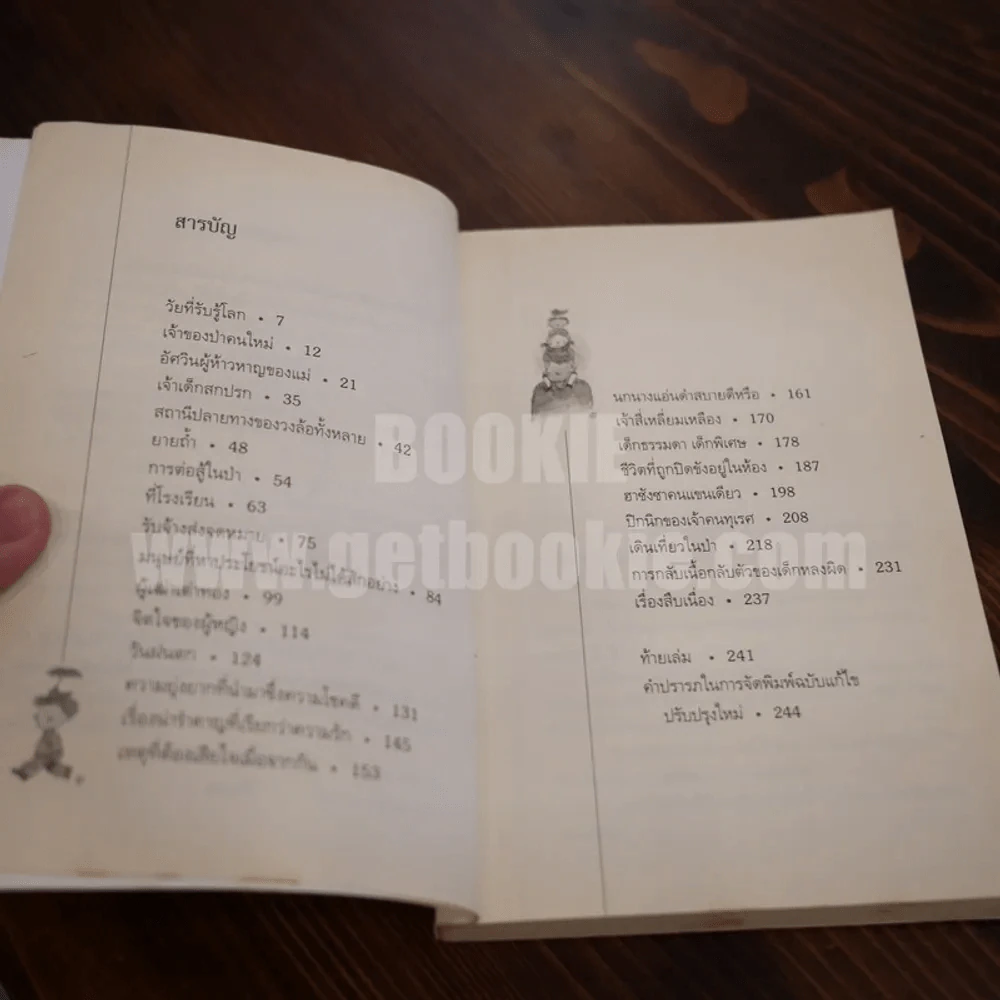 สารบัญ
วัยที่รับรู้โลก • 7
เจ้าของป่าคนใหม่ • 12
อัศวินผู้ห้าวหาญของแม่ • 21
เจ้าเด็กสกปรก • 35
สถานีปลายทางของวงล้อทั้งหลาย • 42
ยายถ้ำ • 48
การต่อสู้ในป่า • 54
ที่โรงเรียน • 63
รับจ้างส่งจดหมาย • 75
มนุษย์ที่หาประโยชน์อะไรไม่ได้สักอย่าง • 84
ผู้เฒ่าเต่าทอง • 99
จิตใจของผู้หญิง • 114
วันฝนตก • 124
ความยุ่งยากที่นำมาซึ่งความโชคดี • 131
เรื่องน่ารำคาญที่เรียกว่าความรัก • 145
เหตุที่ต้องเสียใจเมื่อจากกัน • 153
นกนางแอ่นดำสบายดีหรือ • 161
เจ้าสี่เหลี่ยมเหลือง • 170
เด็กธรรมดา เด็กพิเศษ • 178
ชีวิตที่ถูกปิดขังอยู่ในห้อง • 187
ฮาซังซาคนแขนเดียว • 198
ปิกนิกของเจ้าคนทุเรศ • 208
เดินเที่ยวในป่า • 218
การกลับเนื้อกลับตัวของเด็กหลงผิด • 231
เรื่องสืบเนื่อง • 237
ท้ายเล่ม • 241
คำปรารภในการจัดพิมพ์ฉบับแก้ไข
ปรับปรุงใหม่ • 244
BOOKIE
www.getbookie.com